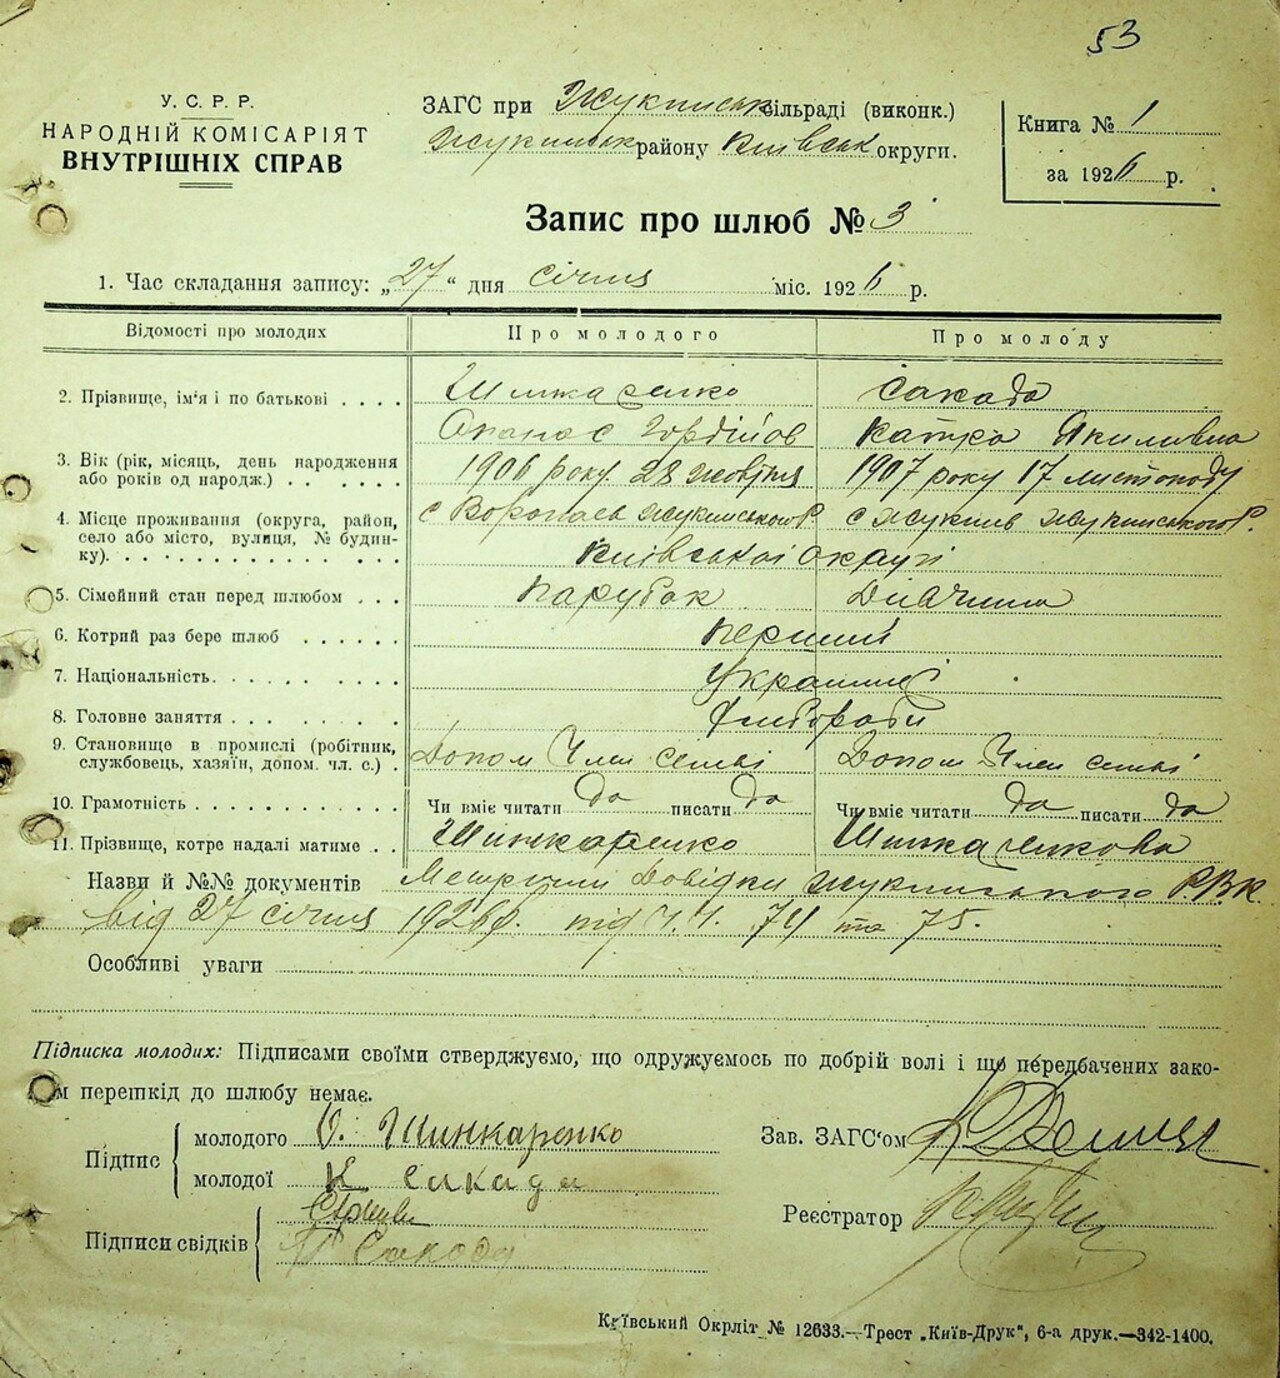 53
У. С. Р. Р.
НАРОДНІЙ КОМІСАРІЯТ
ВНУТРІШНІХ СПРАВ
ЗАГС при Жукинськ сільраді (виконк.)
Жукинськ району Київськ округи.
Книга № 1
за 1926 р.
Запис про шлюб № 3
1. Час складання запису: „27“ дня січня міс. 1926 р.
Відомості про молодих Про молодого Про молоду
2. Прізвище, ім‘я і по батькові Сакада
Опанас Гордійов Катря Якилівна
3. Вік (рік, місяць, день народження
або років од народж.) 1906 року 28 жовтня 1907 року 17 листопаду
4. Місце проживання (округа, район,
село або місто, вулиця, № будин-
ку) с Воропаїв Жукинського Р. с Жукин Жукинського Р.
Київської округи
5. Сімейний стан перед шлюбом парубок Дивчина
6. Котрий раз бере шлюб перший
7. Національність Українці
8. Головне заняття Хлібороби
9. Становище в промислі (робітник,
службовець, хазяїн, допом. чл. с.) Допом Член семьі Допом Член семьі
10. Грамотність Чи вміє читати да писати да Чи вміє читати да писати да
11. Прізвище, котре надалі матиме Шинкаренко
Назви й №№ документів Метричні Довідки Жукинського Р.В.К.
від 27 січня 1926 р. під Ч.Ч. 74 та 75.
Особливі уваги
Підписка молодих: Підписами своїми стверджуємо, що одружуємось по добрій волі і що передбачених зако-
ном перешкід до шлюбу немає.
Підпис
молодого О. Шинкаренко
молодої К Сакада
Зав. ЗАГС‘ом
Підписи свідків
Сакада
Реєстратор
Київський Окрліт № 12633.—Трест „Київ-Друк“, 6-а друк.—342-1400.